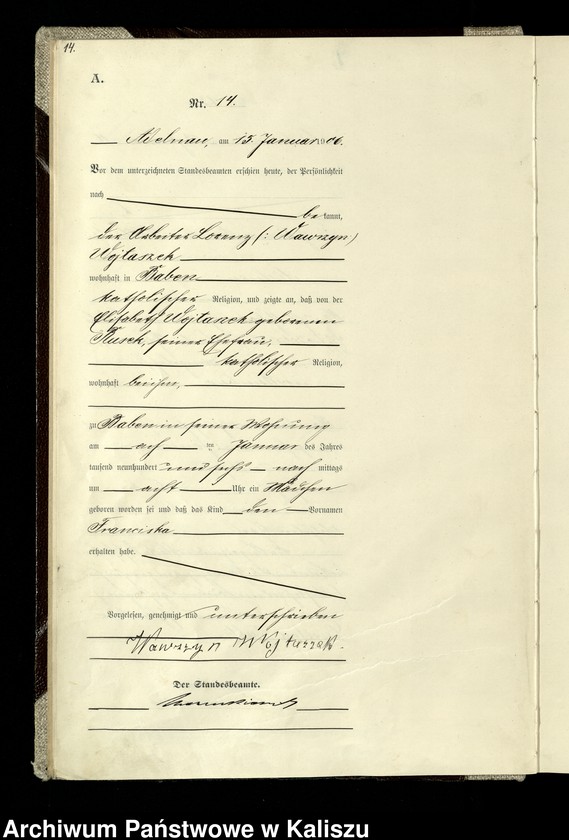 14.
A.
Nr. 14.
Adelnau, am 15. Januar 1906.
Vor dem unterzeichneten Standesbeamten erschien heute, der Persönlichkeit
nach
be kannt,
der Arbeiter Lorenz (: Wawrzyn)
Wojtaszek
wohnhaft in Baben
katholischer Religion, und zeigte an, daß von der
Elisabeth Wojtaszek geborenen
Rusek, seiner Ehefrau,
katholischer Religion,
wohnhaft bei ihm,
zu Baben in seiner Wohnung
am ach ten Januar des Jahres
tausend neunhundert und sechs nach mittags
um acht Uhr ein Mädchen
geboren worden sei und daß das Kind den Vornamen
Franciska
erhalten habe.
Vorgelesen, genehmigt und unterschrieben
Wawrzyn Wojtaszek.
Der Standesbeamte.
Archiwum Państwowe w Kaliszu